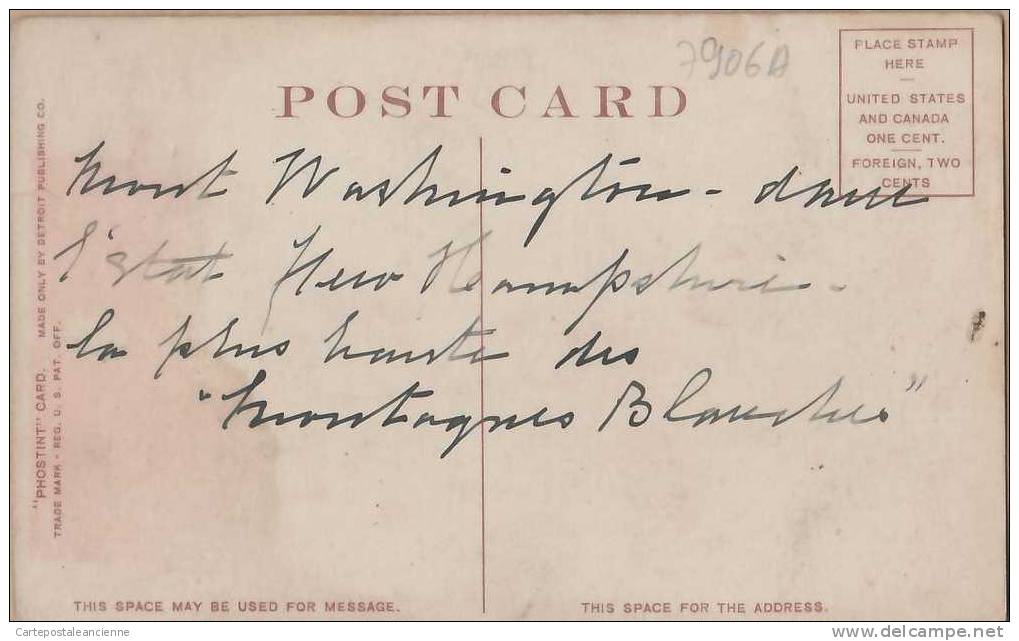 7906A
PLACE STAMP
HERE
UNITED STATES
AND CANADA
ONE CENT.
FOREIGN, TWO
CENTS
POST CARD
Mont Washington - dans
l'état New Hampshire -
la plus haute des
"Montagnes Blanches"
"PHOSTINT" CARD. MADE ONLY BY DETROIT PUBLISHING CO.
TRADE MARK - REG. U. S. PAT. OFF.
THIS SPACE MAY BE USED FOR MESSAGE.
THIS SPACE FOR THE ADDRESS.
Cartepostaleancienne
delcampe.net